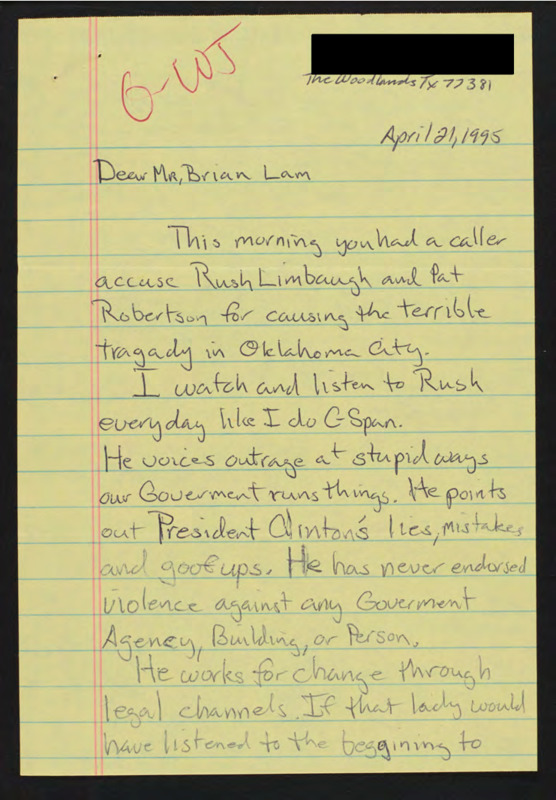 G-WJ
The Woodlands Tx 77381
April 21, 1995
Dear Mr, Brian Lam
This morning you had a caller
accuse Rush Limbaugh and Pat
Robertson for causing the terrible
tragady in Oklahoma City.
I watch and listen to Rush
everyday like I do C-Span.
He voices outrage at stupid ways
our Goverment runs things. He points
out President Clinton's lies, mistakes
and goof ups. He has never endorsed
violence against any Goverment
Agency, Building, or Person.
He works for change through
legal channels. If that lady would
have listened to the beggining to